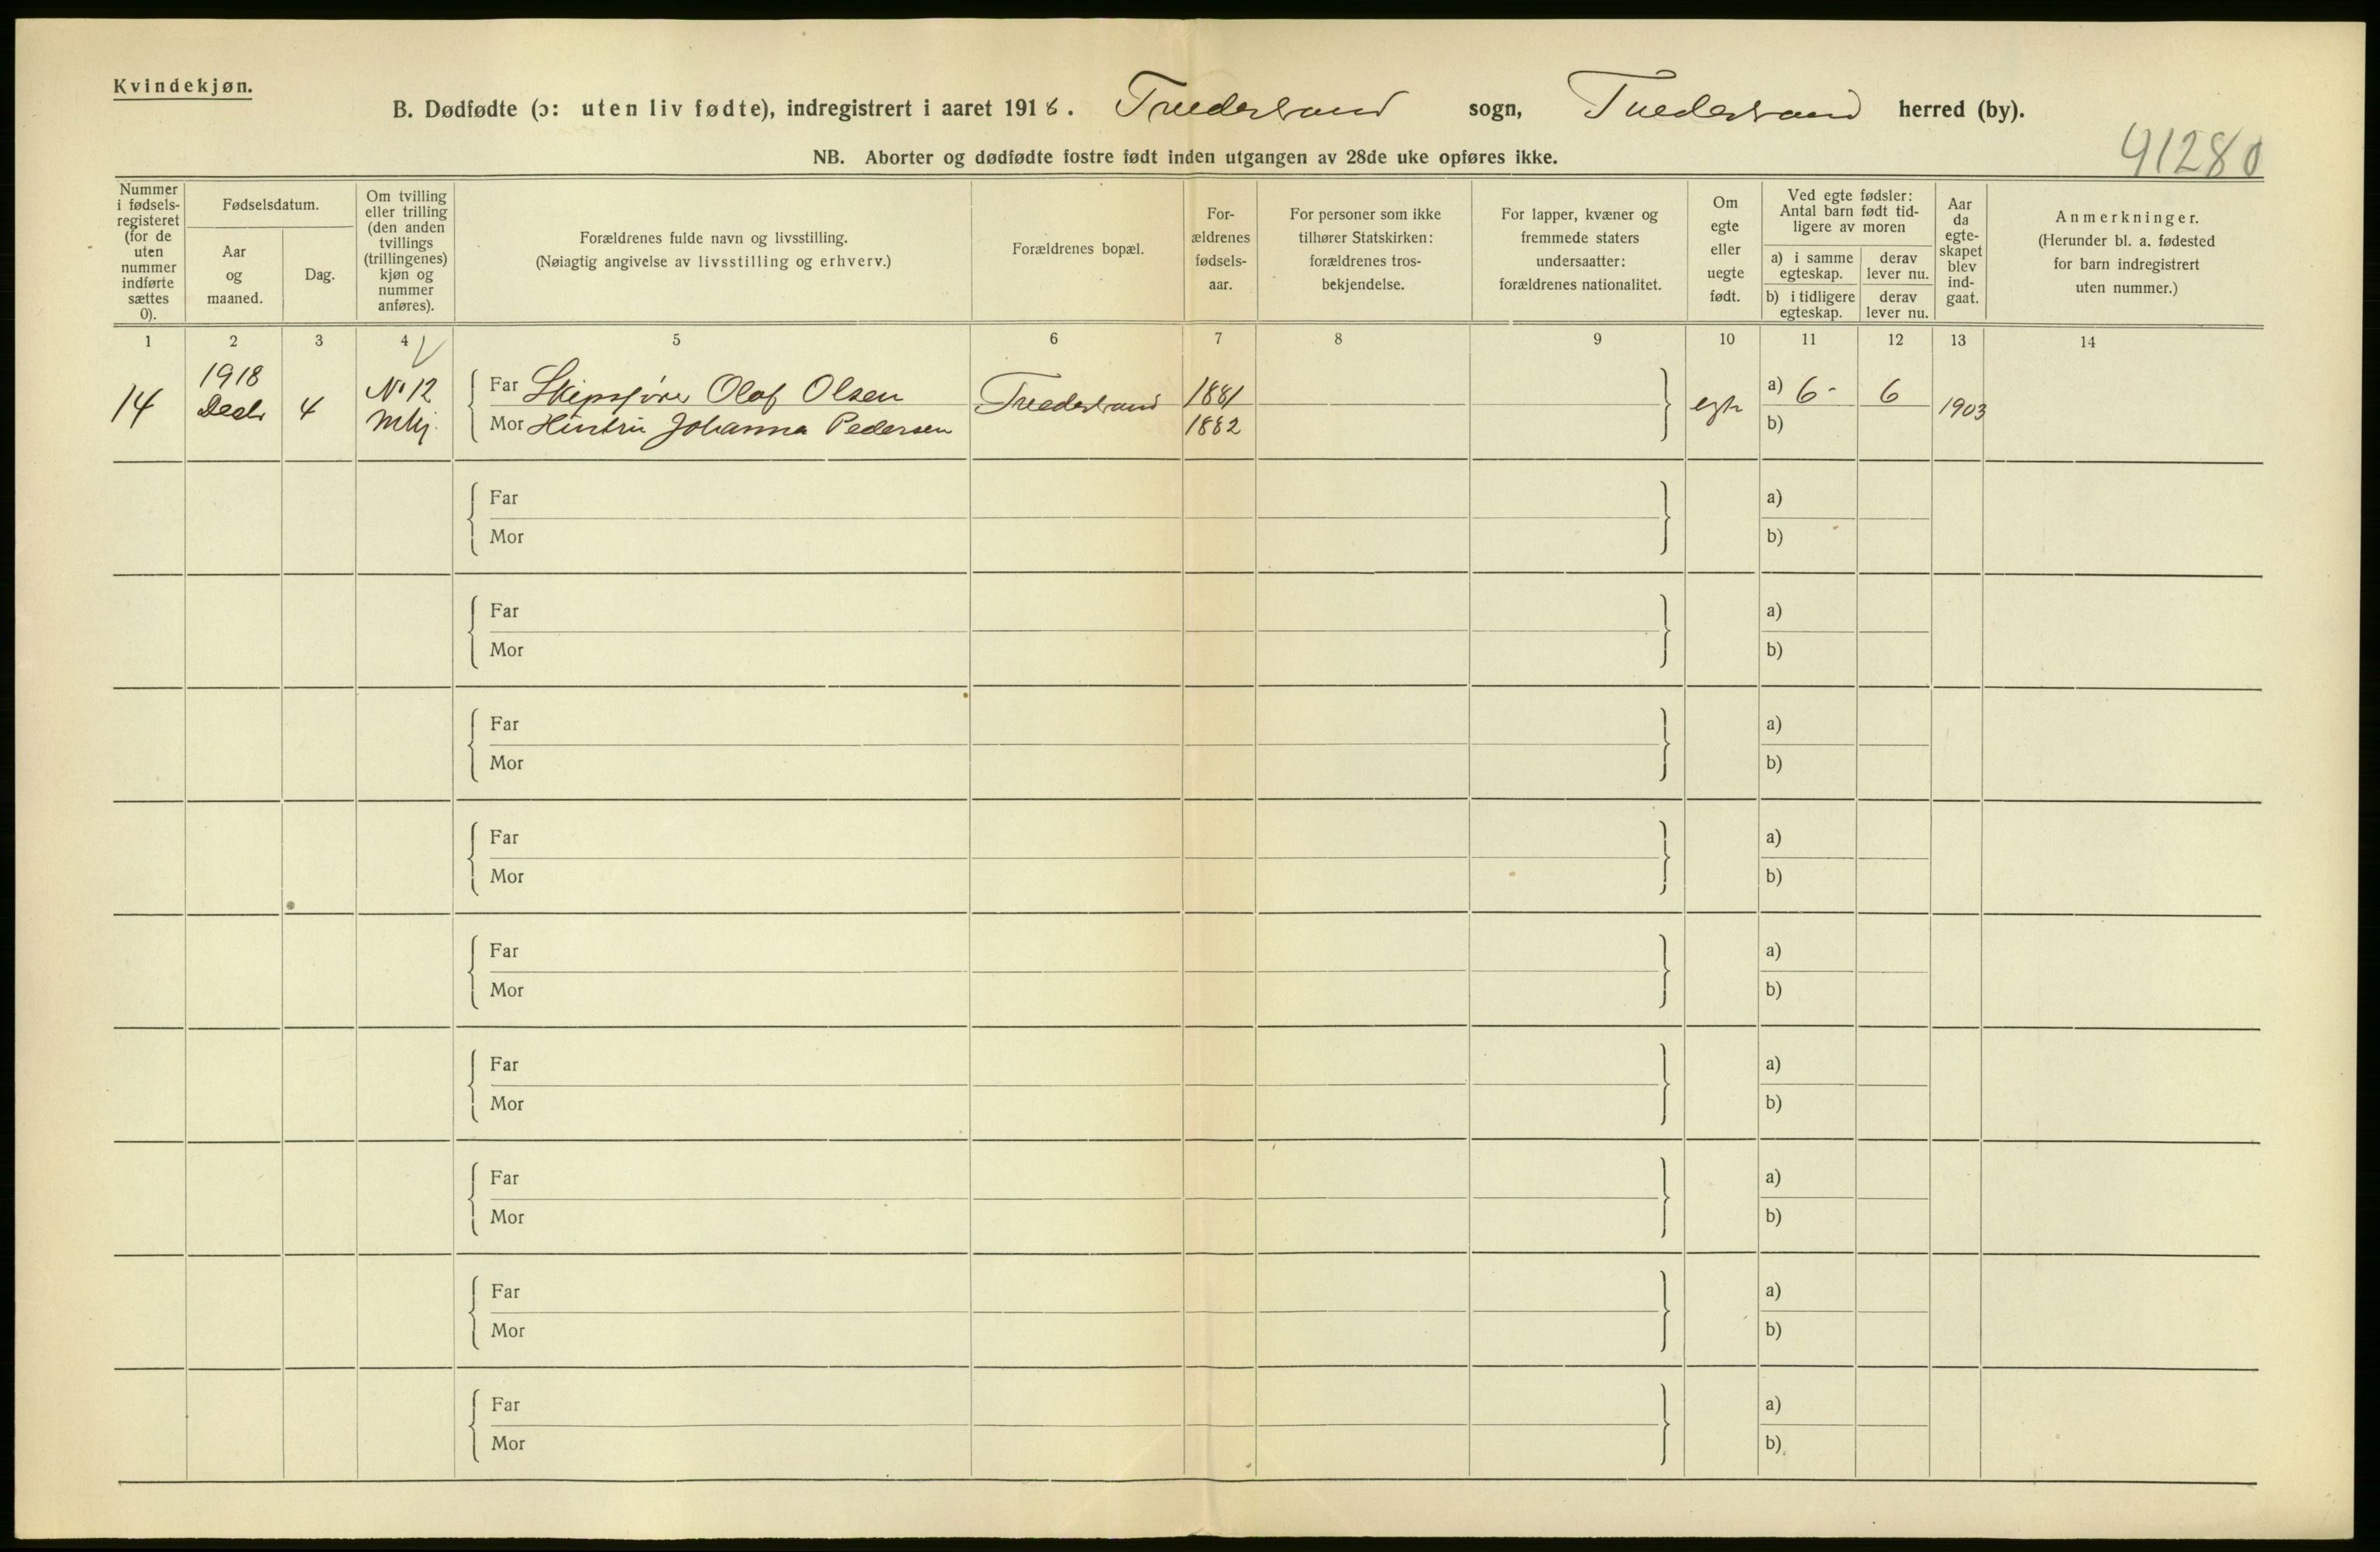 Kvindekjøn.
B. Dødfødte (ɔ: uten liv fødte), indregistrert i aaret 1918. Tvedestrand sogn, Tvedestrand herred (by).
NB. Aborter og dødfødte fostre født inden utgangen av 28de uke opføres ikke.
91280
Nummer i fødsels-registeret (for de uten nummer indførte sættes 0).
Fødselsdatum.
Aar og maaned.
Dag.
Om tvilling eller trilling (den anden tvillings (trillingenes) kjøn og nummer anføres).
Forældrenes fulde navn og livsstilling.
(Nøiagtig angivelse av livsstilling og erhverv.)
Forældrenes bopæl.
For-ældrenes fødsels-aar.
For personer som ikke tilhører Statskirken: forældrenes tros-bekjendelse.
For lapper, kvæner og fremmede staters undersaatter: forældrenes nationalitet.
Om egte eller uegte født.
Ved egte fødsler: Antal barn født tid-ligere av moren
a) i samme egteskap.
derav lever nu.
b) i tidligere egteskap.
derav lever nu.
Aar da egte-skapet blev ind-gaat.
Anmerkninger.
(Herunder bl. a. fødested for barn indregistrert uten nummer.)
1 2 3 4 5 6 7 8 9 10 11 12 13 14
14 1918 Decbr 4 No 12 mkj. Far Skipsfører Olaf Olsen Tvedestrand 1881 egte a) 6 - 6 1903
Mor Hustru Johanna Pedersen 1882 b)
Far a)
Mor b)
Far a)
Mor b)
Far a)
Mor b)
Far a)
Mor b)
Far a)
Mor b)
Far a)
Mor b)
Far a)
Mor b)
Far a)
Mor b)
Far a)
Mor b)